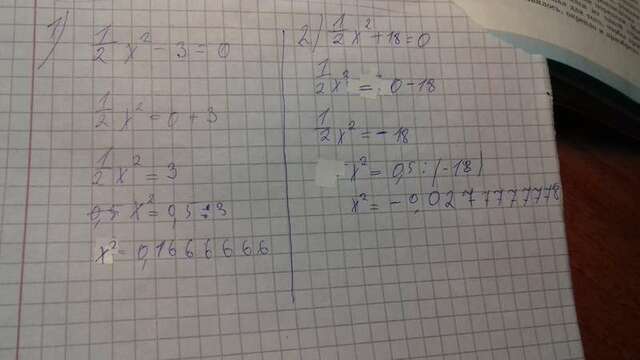 1) 1/2 x² - 3 = 0
1/2 x² = 0 + 3
1/2 x² = 3
x² = 0,5 : 3
x² = 0,1666666
2) 1/2 x² + 18 = 0
1/2 x² = 0 - 18
1/2 x² = - 18
x² = 0,5 : (-18)
x² = - 0,02777777778